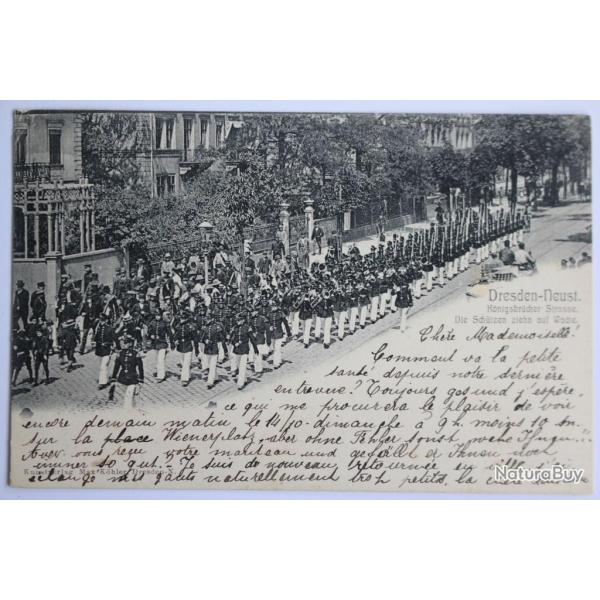 Dresden-Neust.
Königsbrücker Strasse.
Die Schützen ziehn auf Wache.
Chère Mademoiselle!
Comment va la petite
santé depuis notre dernière
entrevue? Toujours gesund j'espère,
ce qui me procurera le plaisir de voir
encore demain matin le 14/10 dimanche à 9 h. moins 10 m
sur la place Wienerplatz, aber ohne Fehler sonst
Avez-vous reçu votre manteau und gefällt er Ihnen noch
immer so gut. - Je suis de nouveau retournée en ville
mes gants naturellement trop petits. la
Kunstverlag Max Köhler, Dresden-N.
NaturaBuy